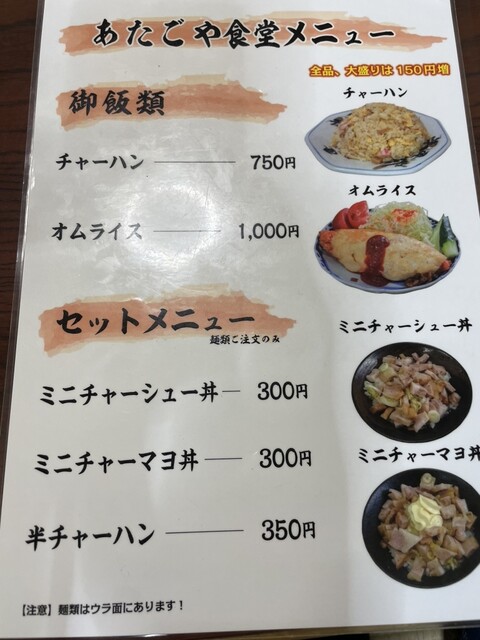 あたごや食堂メニュー
全品、大盛りは150円増
御飯類
チャーハン
チャーハン 750円
オムライス
オムライス 1,000円
セットメニュー
麺類ご注文のみ
ミニチャーシュー丼
ミニチャーシュー丼 300円
ミニチャーマヨ丼
ミニチャーマヨ丼 300円
半チャーハン 350円
【注意】麺類はウラ面にあります!